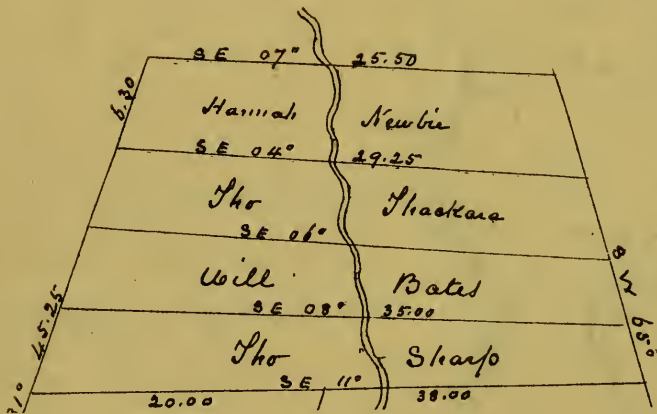 SE 07° 25.50
6.30
Hannah Newbie
SE 04° 29.25
Tho Thackara
SE 06°
Will Bates
45.25
SE 08° 35.00
65°
Tho Sharp
SE 11°
20.00 38.00